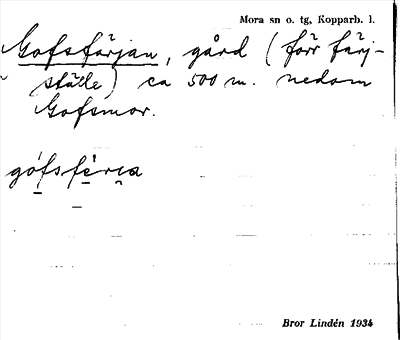 Mora sn o. tg, Kopparb. l.
Gofsfärjan, gård (förr färj-
ställe) ca 500 m. nedom
Gofsmor.
gófsfęrıa
Bror Lindén 1934